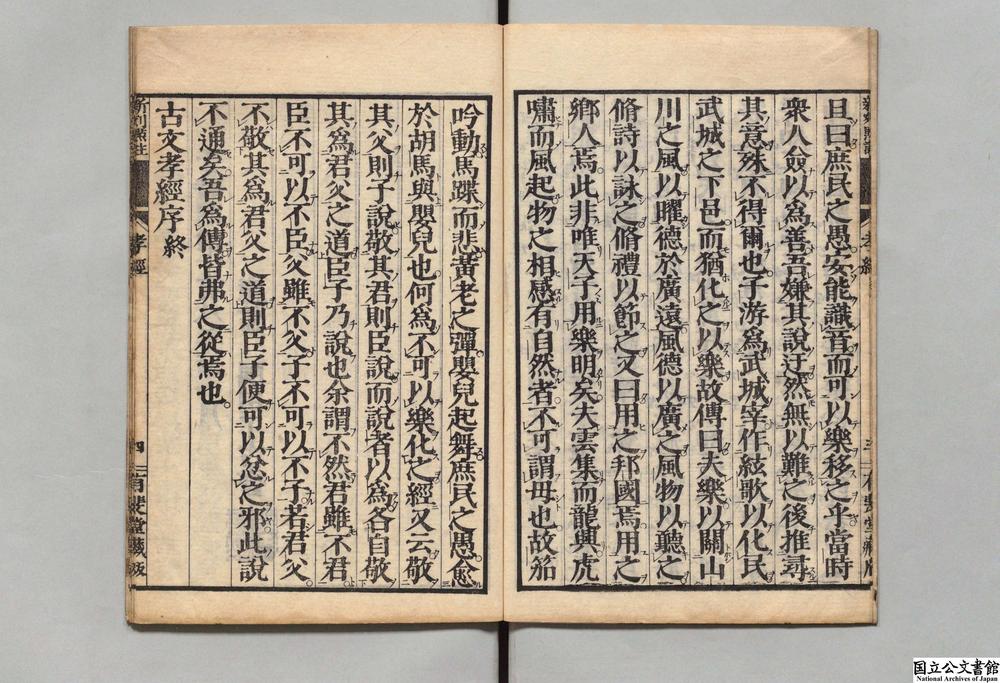 且曰庶民之愚安能識音而可以樂移之乎當時
衆人僉以爲善吾嫌其說迂然無以難之後推尋
其意殊不得爾也子游爲武城宰作絃歌以化民
武城之下邑而猶化之以樂故傳曰夫樂以關山
川之風以曜德於廣遠風德以廣之風物以聽之
脩詩以詠之脩禮以節之又曰用之邦國焉用之
鄉人焉此非唯天子用樂明矣夫雲集而龍興虎
嘯而風起物之相感有自然者不可謂毋也故笳
吟動馬蹀而悲黃老之彈嬰兒起舞庶民之愚愈
於胡馬與嬰兒也何爲不可以樂化之經又云敬
其父則子說敬其君則臣說而說者以爲各自敬
其爲君父之道臣子乃說也余謂不然君雖不君
臣不可以不臣父雖不父子不可以不子若君父
不敬其爲君父之道則臣子便可以忿之邪此說
不通矣吾爲傳皆弗之從焉也
古文孝經序終
孝經
四
有斐堂藏版
国立公文書館
National Archives of Japan